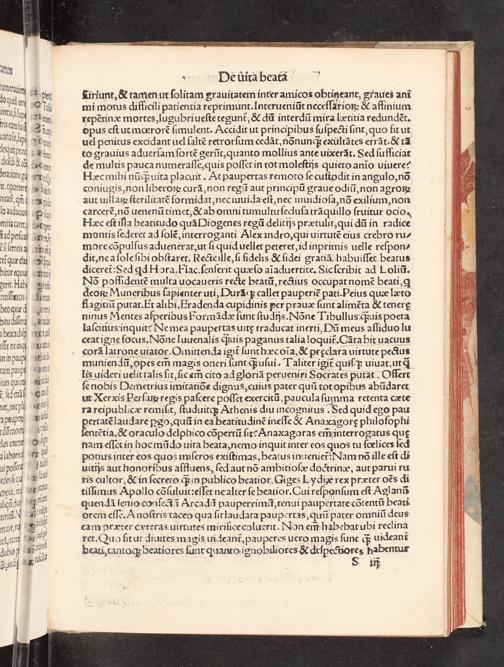 De uita beata
siriunt, & tamen ut solitam grauitatem inter amicos obtineant, graues ani
mi motus difficili patientia reprimunt. Interueniūt necessarioꝝ & affinium
repētinæ mortes, lugubri ueste tegunt, & dū interdū mira lætitia redundēt.
opus est ut mœrorē simulent. Accidit ut principibus suspecti sint, quo fit ut
uel penitus excidant uel saltē retrorsum cedāt, nōnunꝗ̄ exultātes errāt. & tā
to grauius aduersam fortē gerūt, quanto mollius ante uixerāt. Sed sufficiat
de multis pauca numerasse, quis posset in tot molestijs quieto anio uiuere?
Hæc mihi nūꝗ̄ uita placuit. At paupertas remoto se custodit in angulo, nō
coniugis, non liberoꝝ curā, non regū aut principū graue odiū, non agroꝝ
aut uillaꝝ sterilitatē formidat, nec iuuida est, nec inuidiosa, nō exilium, non
carcerē, nō uenenū timet, & ab omni tumultu seclusa trāquillo fruitur ocio.
Hæc est illa beatitudo quā Diogenes regū delitijs prætulit, qui dū in radice
montis sederet ad solē, interroganti Alexandro, qui uirtute eius crebro ru⸗
more cōpulsus aduenerat, ut si quid uellet peteret, id inprimis uelle respon⸗
dit, ne a sole sibi obstaret. Recte ille, si fidelis & fidei gratiā habuisset beatus
diceret. Sed qd Hora. Flac. senserit quæso aīaduertite. Sic scribit ad Loliū.
Nō possidentē multa uocaueris recte beatū, rectius occupat nomē beati, q
deoꝝ Muneribus sapienter uti, Durāꝗ callet pauperiē pati. Peius quæ læto
flagitiū putat. Et alibi. Eradenda cupidinis per prauæ sunt alimēta & teneræ
nimus Mentes asperibus Formādæ sunt studijs. Nōne Tibullus ꝗ̄uis poeta
lasciuus inquit: Ne mea paupertas uitę traducat inerti, Dū meus assiduo lu
ceat igne focus. Nōne Iuuenalis ꝗ̄uis paganus talia loquit. Cātabit uacuus
corā latrone uiator. Omittenda igit̄ sunt hæc oīa, & pręclara uirtute pectus
muniendū, opes em̄ magis oneri sunt ꝗ̄ usui. Taliter igit̄ quisꝗ uiuat, ut q̄
lis uideri uelit talis sit, sic em̄ cito ad gloriā perueniri Socrates putat. Offert
se nobis Demetrius imitatiōe dignus, cuius pater quū tot opibus abūdaret
ut Xerxis Persaꝝ regis pascere posset exercitū, paucula summa retenta cæte
ra reipublicæ remisit, studuitꝗ Athenis diu incognitus. Sed quid ego pau
pertatē laudare pgo, quū in ea beatitudinē inesse & Anaxagoræ philosophi
sentētia, & oraculo delphico cōpertū sit? Anaxagoras em̄ interrogatus quę
nam esset in hoc mādo uita beata, nemo inquit ex eos quos tu fœlices sed
potius inter eos quos miseros existimas, beatus inuenier? Nam nō ille est di
uitijs aut honoribus affluens, sed aut nō ambitiosæ doctrinæ, aut parui ru
ris cultor, & in secreto ꝗ̄ in publico beatior. Giges Lydiæ rex præter oēs di
tissimus Apollo cōsuluit: esset ne alter se beatior. Cui responsum est Aglaū
quendā senio confectū Arcadā pauperrimū, tenui paupertate cōtentū beati
orem esse. A nostris taceo qua sit laudata paupertas, quū pater omniū deus
eam præter cæteras uirtutes mirifice coluerit. Non em̄ habebat ubi reclina
ret. Quo fit ut diuites magis uideant̄, pauperes uero magis sunt ꝗ̄ uideant̄
beati, tantoꝗ beatiores sunt quanto ignobiliores & despectiores habentur
S iij